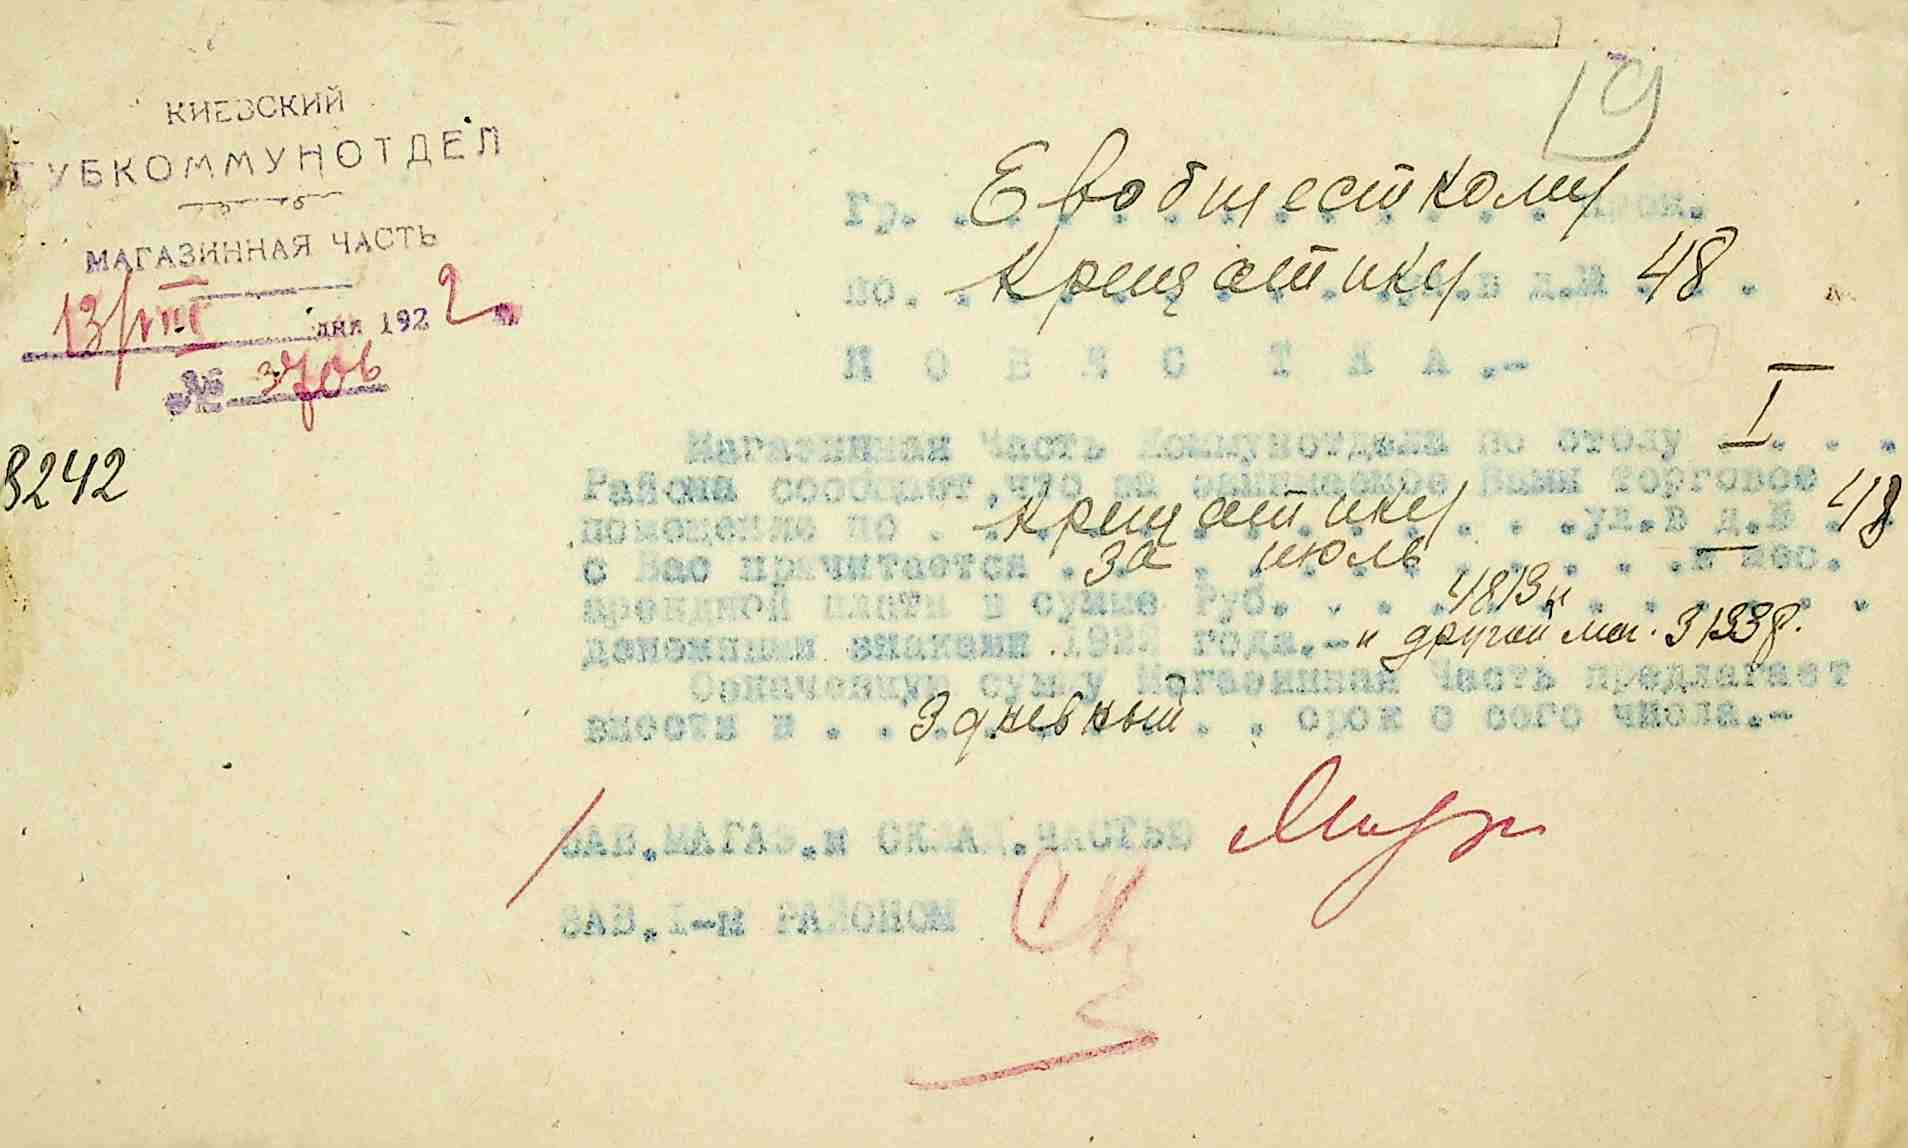 19
КИЕВСКИЙ
ГУБКОММУНОТДЕЛ
МАГАЗИННАЯ ЧАСТЬ
13/VIII дня 1922
№ 3706
8242
Гр. Евобщесткому
по. Крещатику ул. в д.№ 48
П О В Е С Т К А .-
Магазинная Часть Коммунотдела по столу I
Района сообщает, что за занимаемое Вами торговое
помещение по . Крещатику . ул. в д.№ 48
с Вас причитается . за июль . в мес.
арендной платы в сумме Руб. 4813
денежными знаками 1922 года.- и другой маг. 31338.
Означенную сумму Магазинная Часть предлагает
внести в . 3 дневный . срок с сего числа.-
ЗАВ.МАГАЗ.и СКЛАД.ЧАСТЬЮ
ЗАВ.I-м РАЙОНОМ